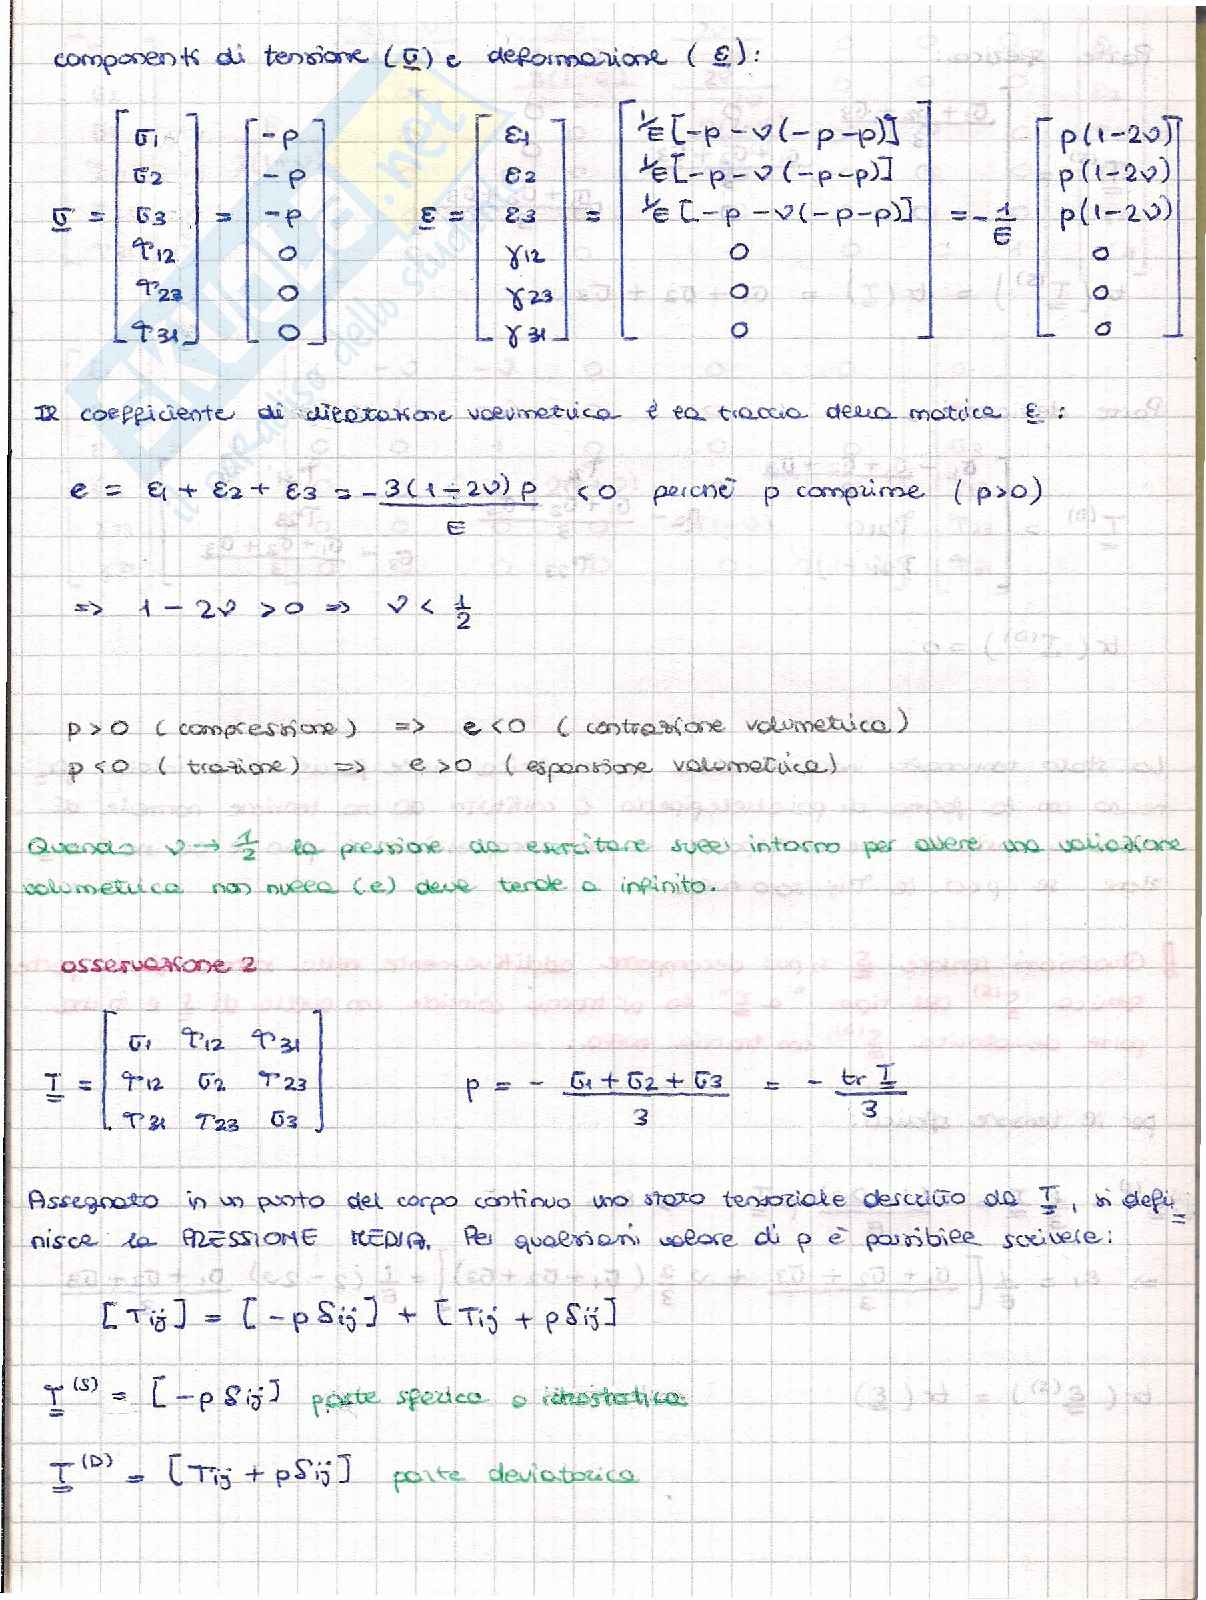 componenti di tensione (σ) e deformazione (ε):
σ = [σ1 σ2 σ3 τ12 τ23 τ31] = [-p -p -p 0 0 0] ε = [ε1 ε2 ε3 γ12 γ23 γ31] = [1/E[-p-ν(-p-p)] 1/E[-p-ν(-p-p)] 1/E[-p-ν(-p-p)] 0 0 0] = -1/E [p(1-2ν) p(1-2ν) p(1-2ν) 0 0 0]
Il coefficiente di dilatazione volumetrica è la traccia della matrice ε:
e = ε1 + ε2 + ε3 = - 3(1-2ν)p / E < 0 perchè p comprime (p>0)
=> 1 - 2ν > 0 => ν < 1/2
p > 0 (compressione) => e < 0 (contrazione volumetrica)
p < 0 (trazione) => e > 0 (espansione volumetrica)
Quando ν → 1/2 la pressione da esercitare sull'intorno per avere una variazione
volumetrica non nulla (e) deve tende a infinito.
osservazione 2
T = [σ1 τ12 τ31
τ12 σ2 τ23
τ31 τ23 σ3] p = - (σ1 + σ2 + σ3)/3 = - tr T/3
Assegnato in un punto del corpo continuo uno stato tensoriale descritto da T, si defi
nisce la PRESSIONE MEDIA. Per qualsiasi valore di p è possibile scrivere:
[Tij] = [-pδij] + [Tij + pδij]
T(S) = [-pδij] parte sferica o idrostatica
T(D) = [Tij + pδij] parte deviatorica